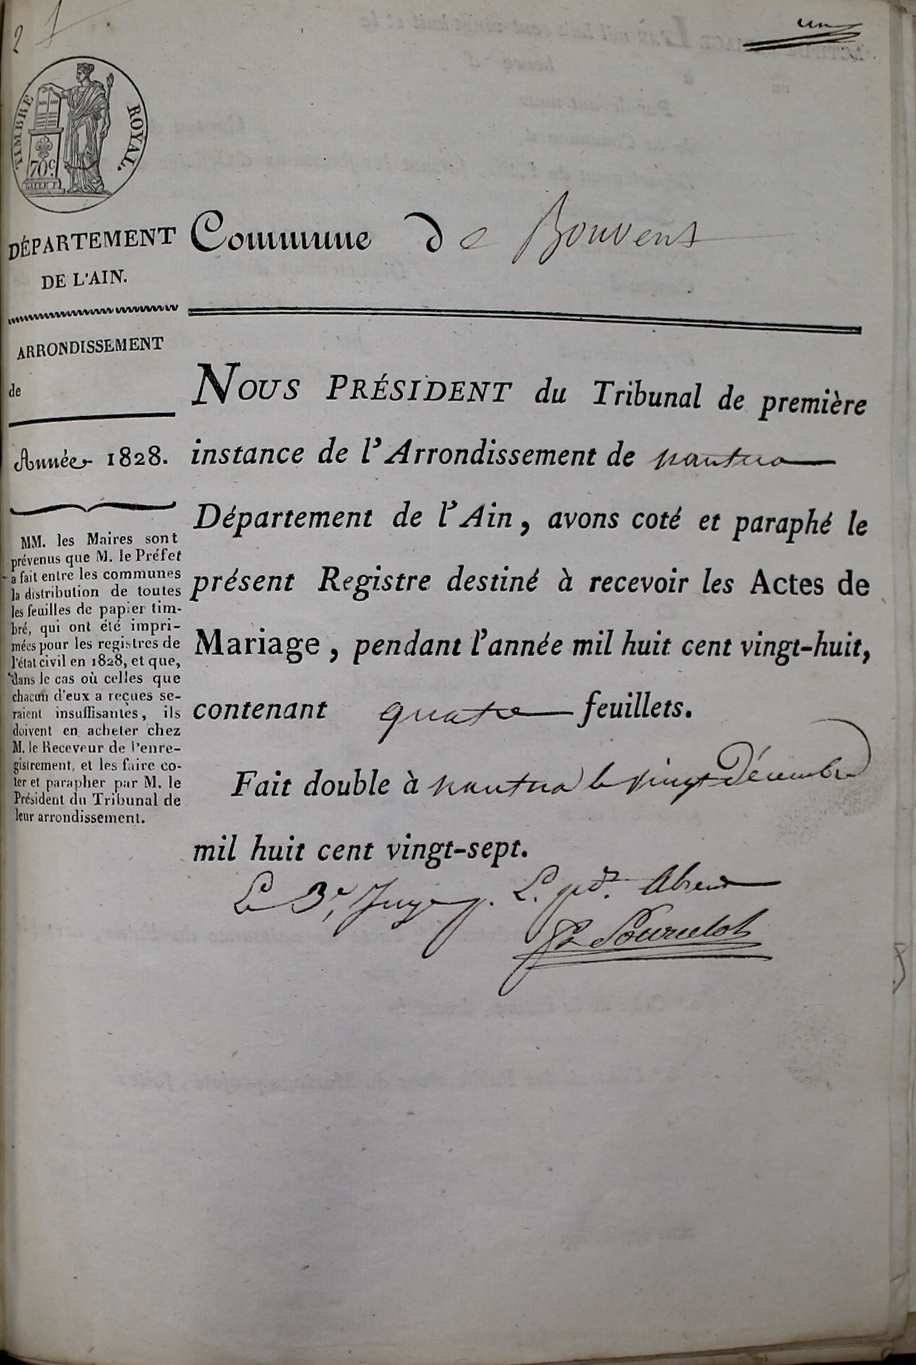 2
1
un
TIMBRE ROYAL.
70c
DÉPARTEMENT
DE L'AIN.
Commune de Bouvens
ARRONDISSEMENT
de
Année 1828.
MM. les Maires sont
prévenus que M. le Préfet
a fait entre les communes
la distribution de toutes
les feuilles de papier tim-
bré, qui ont été impri-
mées pour les registres de
l'état civil en 1828, et que,
dans le cas où celles que
chacun d'eux a reçues se-
raient insuffisantes, ils
doivent en acheter chez
M. le Receveur de l'enre-
gistrement, et les faire co-
ter et parapher par M. le
Président du Tribunal de
leur arrondissement.
NOUS PRÉSIDENT du Tribunal de première
instance de l'Arrondissement de nantua
Département de l'Ain, avons coté et paraphé le
présent Registre destiné à recevoir les Actes de
Mariage, pendant l'année mil huit cent vingt-huit,
contenant quatre feuillets.
Fait double à nantua le vingt Décembre
mil huit cent vingt-sept.
Le 3e, Juge p. L. pdt. Absent